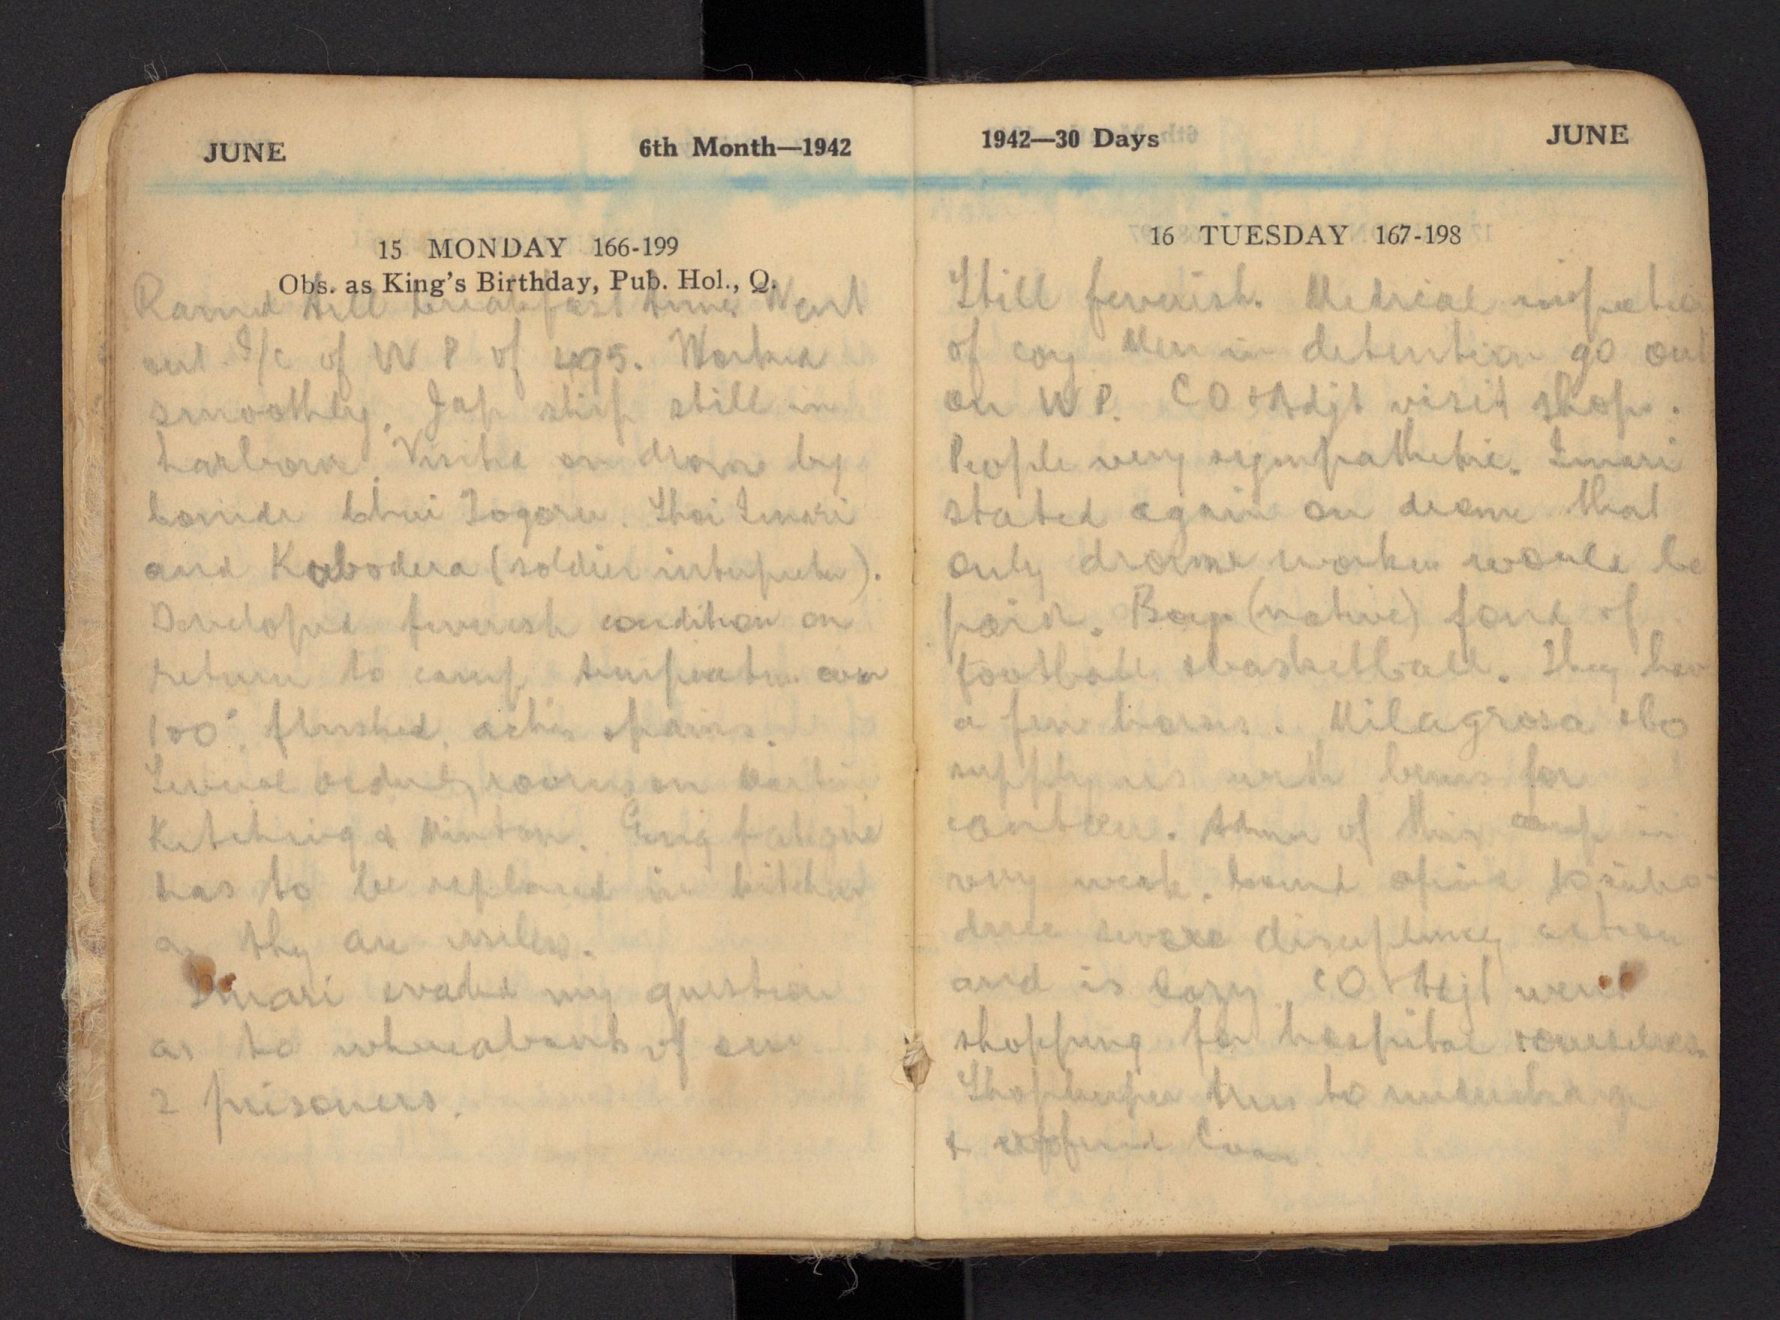 JUNE 6th Month—1942
15 MONDAY 166-199
Obs. as King's Birthday, Pub. Hol., Q.
Rained till breakfast time. Went
out I/c of W P of 495. Worked
smoothly. Jap ship still in
harbour. Visited on drome by
Shoi Imari
and Kubodera (soldier interpreter).
Developed feverish condition on
return to camp, temperature over
100°, flushed, aches & pains.
room on
Ketching & Minton. Eng fatigue
has to be replaced in kitchen
as they are useless.
Imari evaded my question
as to whereabouts of our
2 prisoners.
1942—30 Days JUNE
16 TUESDAY 167-198
Still feverish. Medical inspection
of coy. Men in detention go out
on W P. CO & Adjt visit shop.
People very sympathetic. Imari
stated again on drome that
only drome workers would be
paid. (native) fond of
football & basketball. They have
a few horses. Milagrosa also
supply us with beans for
canteen. Admin of this camp is
very weak.
severe disciplinary action
and is lazy. CO & Adjt went
shopping for hospital & ourselves.
Shopkeeper tries to undercharge
&